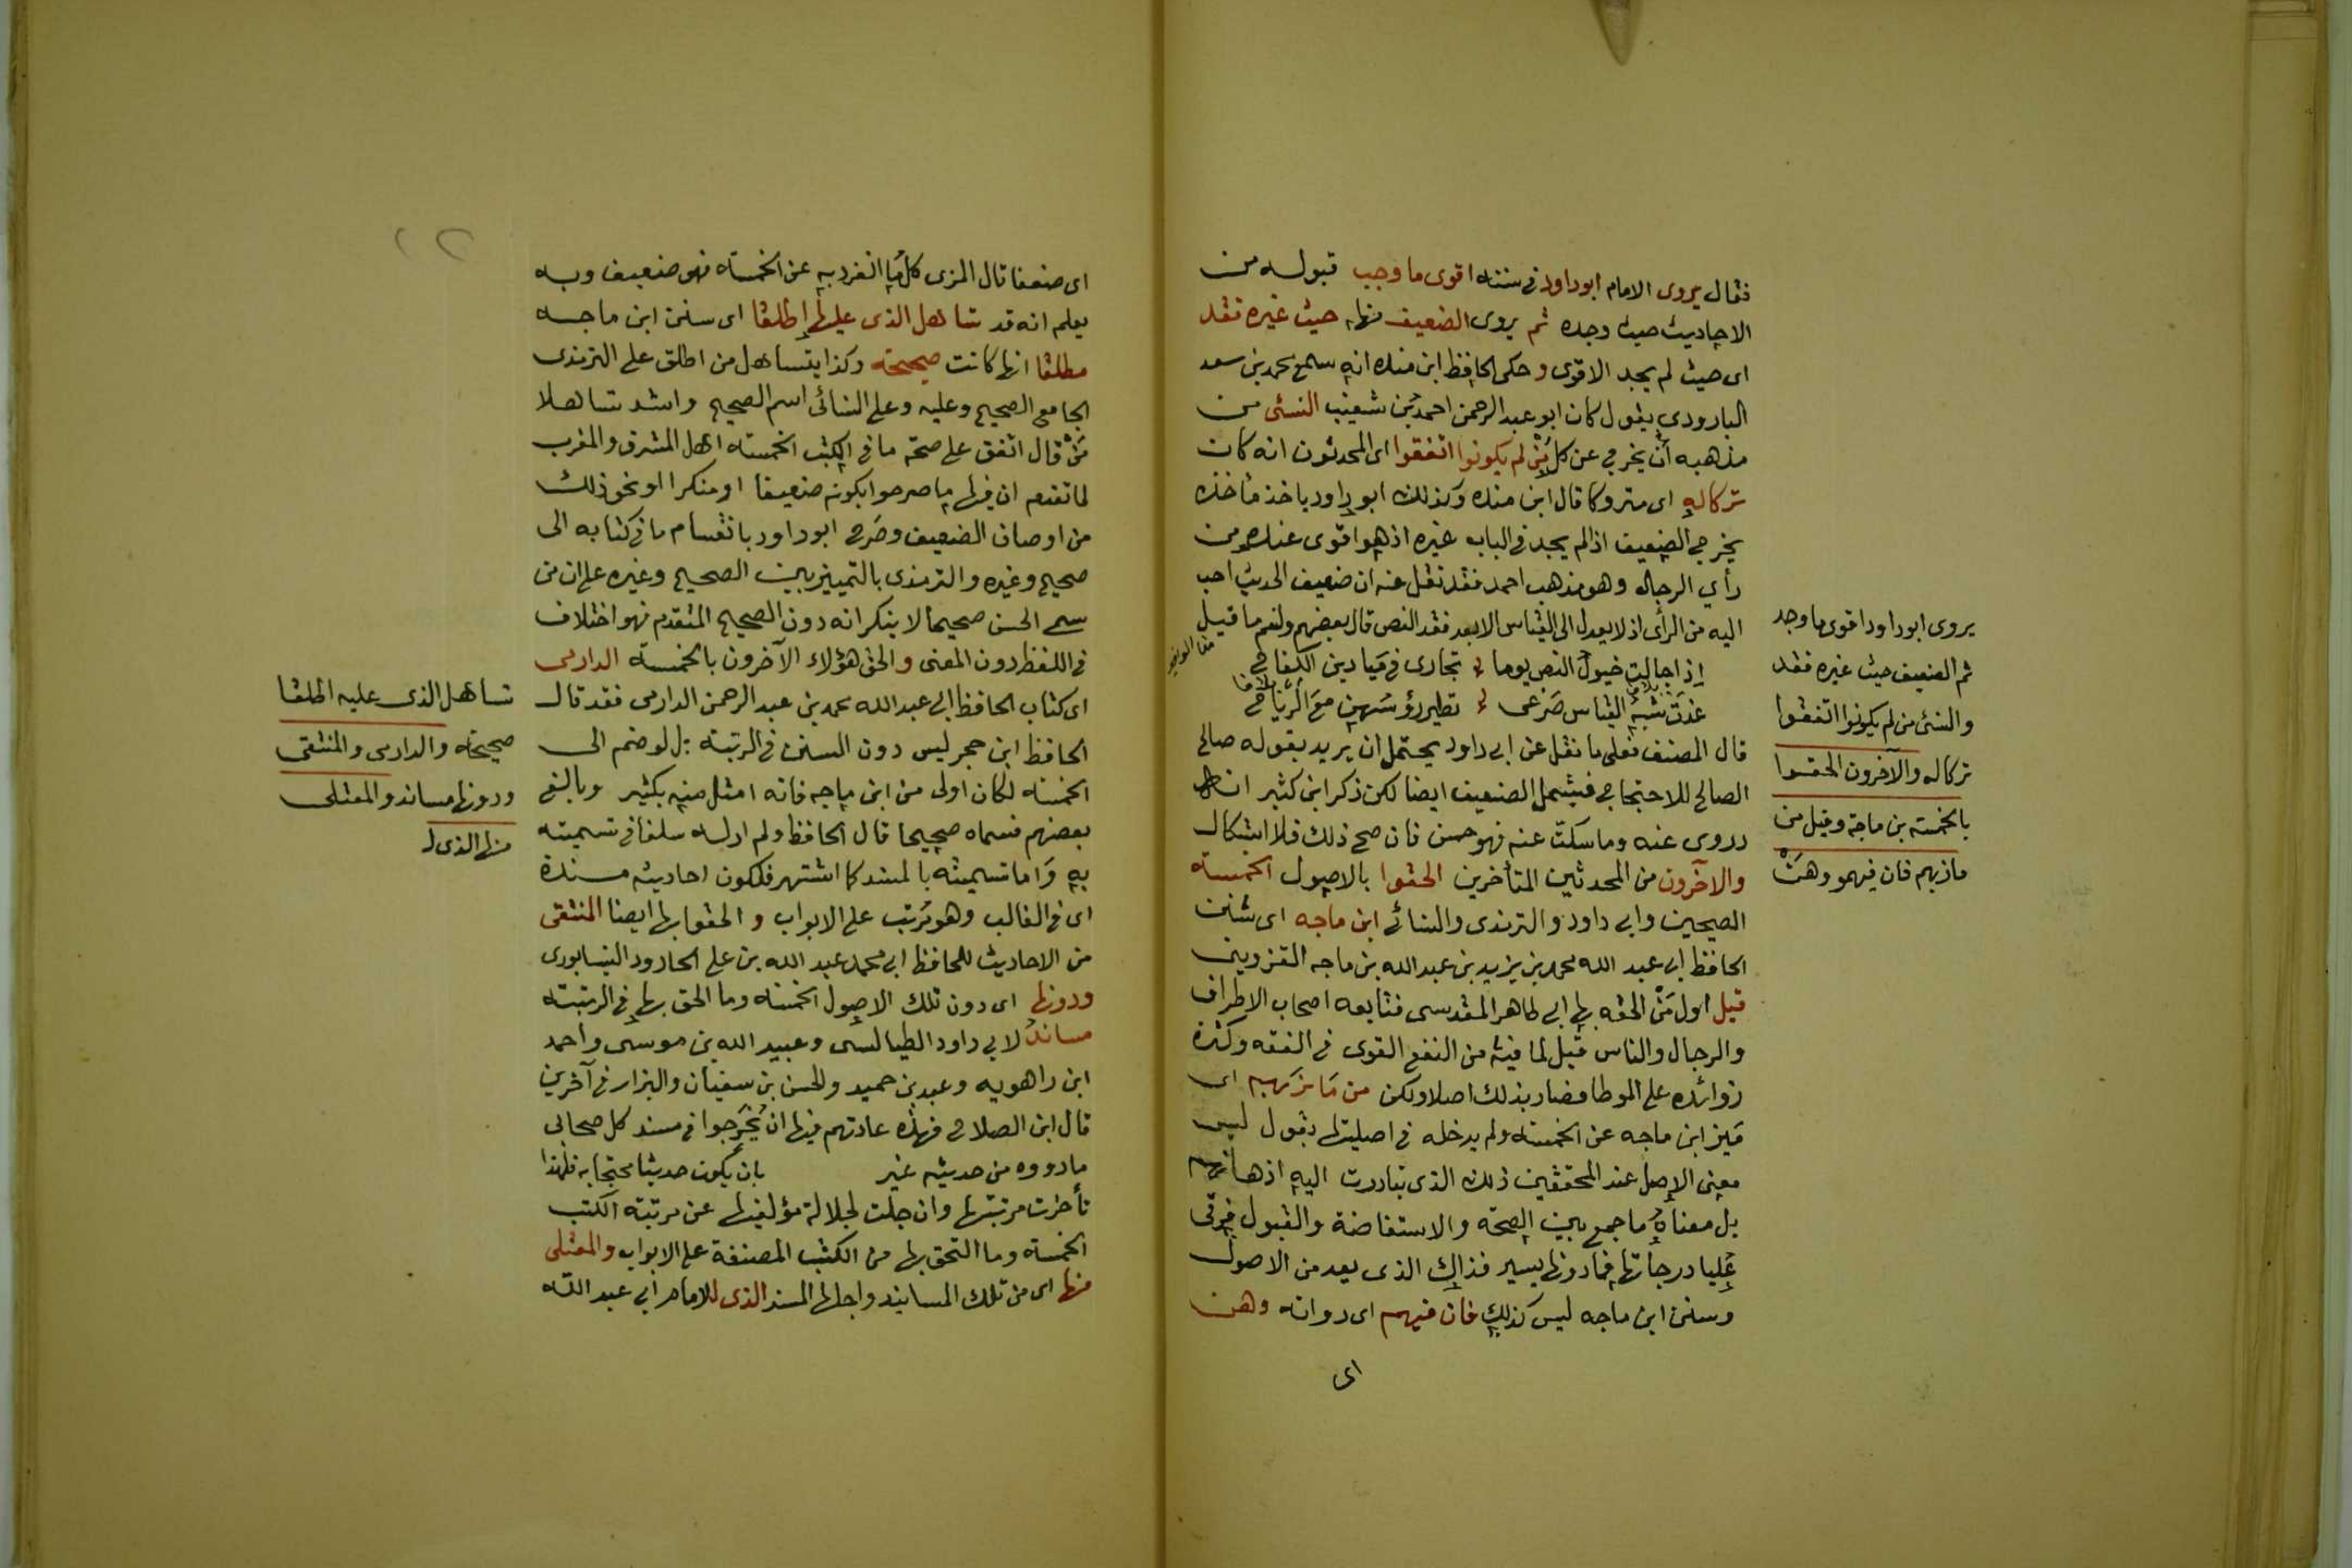 فقال يروى الامام ابوداود فى سننه اقوى ما وجب قبوله من
الاحاديث حيث وجده ثم يروى الضعيف منها حيث غيره فقد
اى حيث لم يجد الاقوى وحكى الحافظ ابن منده انه سمع محمد بن سعد
البارودى يقول كان ابو عبد الرحمن احمد بن شعيب النسئى من
مذهبه أن يخرج عن كل من لم يكونوا اتفقوا اى المحدثون انه كان
تركاله اى متروكا قال ابن منده وكذلك ابو داود ياخذ مأخذه
يخرج الضعيف اذا لم يجد فى الباب غيره اذ هو اقوى عنده من
رأي الرجال وهو مذهب احمد فقد نقل عنه ان ضعيف الحديث احب
اليه من الرأى اذ لا يعدل الى القياس الا بعد فقد النص قال بعضهم ولنعم ما قيل
اذا جالت خيول النص يوما تجارى فى ميادين الكفاح
غدت شبه القياس صرعى تطير رؤسهن مع الرياح
قال المصنف فعلى ما نقل عن ابى داود يحتمل ان يريد بقوله صالح
الصالح للاحتجاج فيشمل الضعيف ايضا لكن ذكر ابن كثير انه
روى عنه وما سكت عنه فهو حسن فان صح ذلك فلا اشكال
والآخرون من المحدثين المتأخرين الحقوا بالاصول الخمسة
الصحيحين وابى داود والترمذى والنسائى ابن ماجه اى سنن
الحافظ ابى عبد الله محمد بن يزيد بن عبد الله بن ماجه القزوينى
قيل اول من الحقه بها ابى طاهر المقدسى فتابعه اصحاب الاطراف
والرجال والناس قيل لما فيه من النفع القوى فى الفقه وكثرة
زوائده على الموطا فصار بذلك اصلا ولكن من مازبهم اى
ميز ابن ماجه عن الخمسة ولم يدخله فى اصليتها يقول ليس
معنى الاصل عند المحققين ذلك الذى تبادرت اليه اذهانهم
بل معناه ما جمع بين الصحة والاستفاضة والقبول فى
عليا درجاتها فما دونها بيسير فذاك الذى يعد من الاصول
وسنن ابن ماجه ليس كذلك فان فيهم اى رواته وهن
اى
يروى ابوداود اقوى ما وجد
ثم الضعيف حيث غيره فقد
والنسئ من لم يكونوا اتفقوا
تركاله والآخرون الحقوا
بالخمسة بن ماجة وقيل من
مازبهم فان فيهمو وهن
اى ضعفا قال المزى كل ما انفرد به عن الخمسة فهو ضعيف وبه
يعلم انه قد تساهل الذى عليها اطلقا اى سنن ابن ماجه
مطلقا انها كانت صحيحة وكذا يتساهل من اطلق على الترمذى
الجامع الصحيح وعليه وعلى النسائى اسم الصحيح واشد تساهلا
من قال اتفق على صحة ما فى الكتب الخمسة اهل المشرق والمغرب
لما تقدم ان فيها ما صرحوا بكونه ضعيفا او منكرا او نحو ذلك
من اوصاف الضعيف وصرح ابوداود بانقسام ما فى كتابه الى
صحيح وغيره والترمذى بالتمييز بين الصحيح وغيره على ان من
سمى الحسن صحيحا لا ينكر انه دون الصحيح المتقدم فهو اختلاف
فى اللفظ دون المعنى والحق هؤلاء الآخرون بالخمسة الدارمى
اى كتاب الحافظ ابى عبد الله محمد بن عبد الرحمن الدارمى فقد قال
الحافظ ابن حجر ليس دون السنن فى الرتبة بل لو ضم الى
الخمسة لكان اولى من ابن ماجه فانه امثل منه بكثير وبالغ
بعضهم فسماه صحيحا قال الحافظ ولم ار له سلفا فى تسميته
به واما تسميته بالمسند كما اشتهر فلكون احاديثه مسندة
اى فى الغالب وهو مرتب على الابواب و الحقوا بها ايضا المنتقى
من الاحاديث للحافظ ابى محمد عبد الله بن على الجارود النيسابورى
ودونها اى دون تلك الاصول الخمسة وما الحق بها فى الرتبة
مساند لابى داود الطيالسى وعبيد الله بن موسى واحمد
ابن راهويه وعبد بن حميد والحسن بن سفيان والبزار فى آخرين
قال ابن الصلاح فهذه عادتهم فيها ان يخرجوا فى مسند كل صحابى
ما رووه من حديثه غير بان يكون حديثا محتجا به فلهذا
تأخرت مرتبتها وان جلت لجلالة مؤلفيها عن مرتبة الكتب
الخمسة وما التحق بها من الكتب المصنفة على الابواب والمعتلى
منها اى من تلك المسانيد واجلها المسند الذى للامام ابى عبد الله
تساهل الذى عليه اطلقا
صحيحة والدارمى والمنتقى
ودونها مساند والمعتلى
منها الذى ل